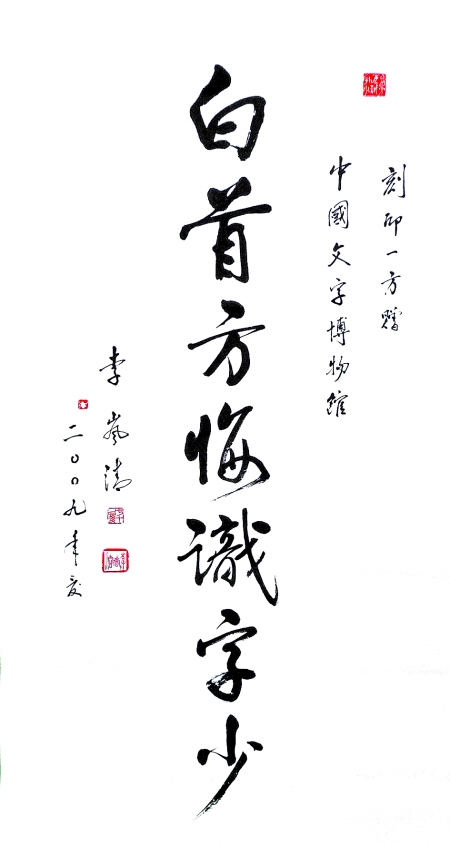 刻印一方贈
中國文字博物館
白首方悔識字少
李嵐清
二〇〇九年夏